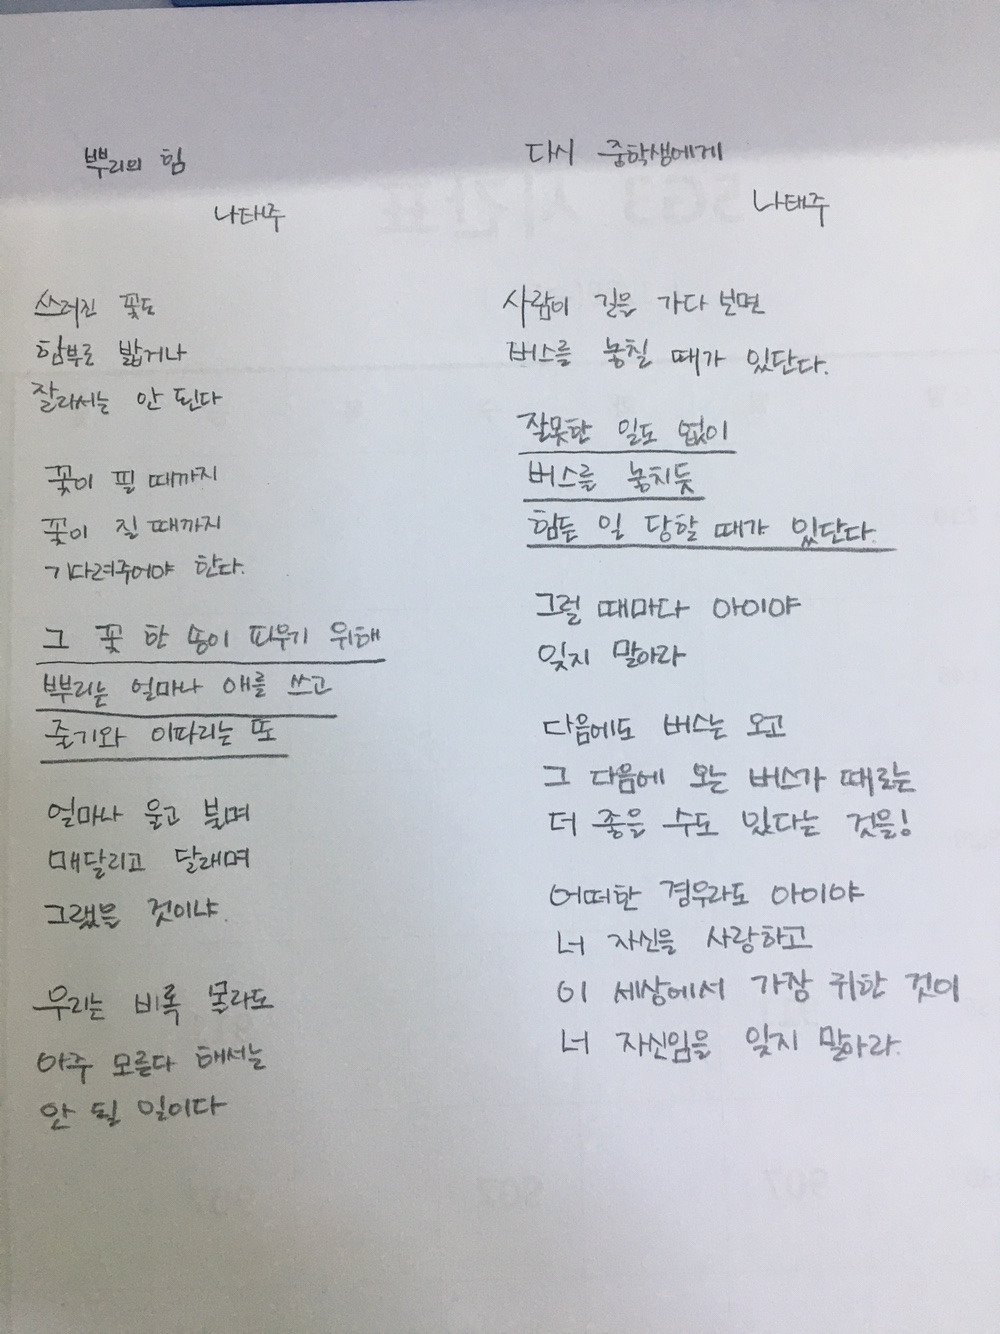 뿌리의 힘
나태주
쓰러진 꽃도
함부로 밟거나
잘라서는 안 된다
꽃이 필 때까지
꽃이 질 때까지
기다려주어야 한다.
그 꽃 한 송이 피우기 위해
뿌리는 얼마나 애를 쓰고
줄기와 이파리는 또
얼마나 울고 불며
매달리고 달래며
그랬을 것이냐.
우리는 비록 몰라도
아주 모른다 해서는
안 될 일이다
다시 중학생에게
나태주
사람이 길을 가다 보면
버스를 놓칠 때가 있단다.
잘못한 일도 없이
버스를 놓치듯
힘든 일 당할 때가 있단다.
그럴 때마다 아이야
잊지 말아라
다음에도 버스는 오고
그 다음에 오는 버스가 때로는
더 좋을 수도 있다는 것을!
어떠한 경우라도 아이야
너 자신을 사랑하고
이 세상에서 가장 귀한 것이
너 자신임을 잊지 말아라.